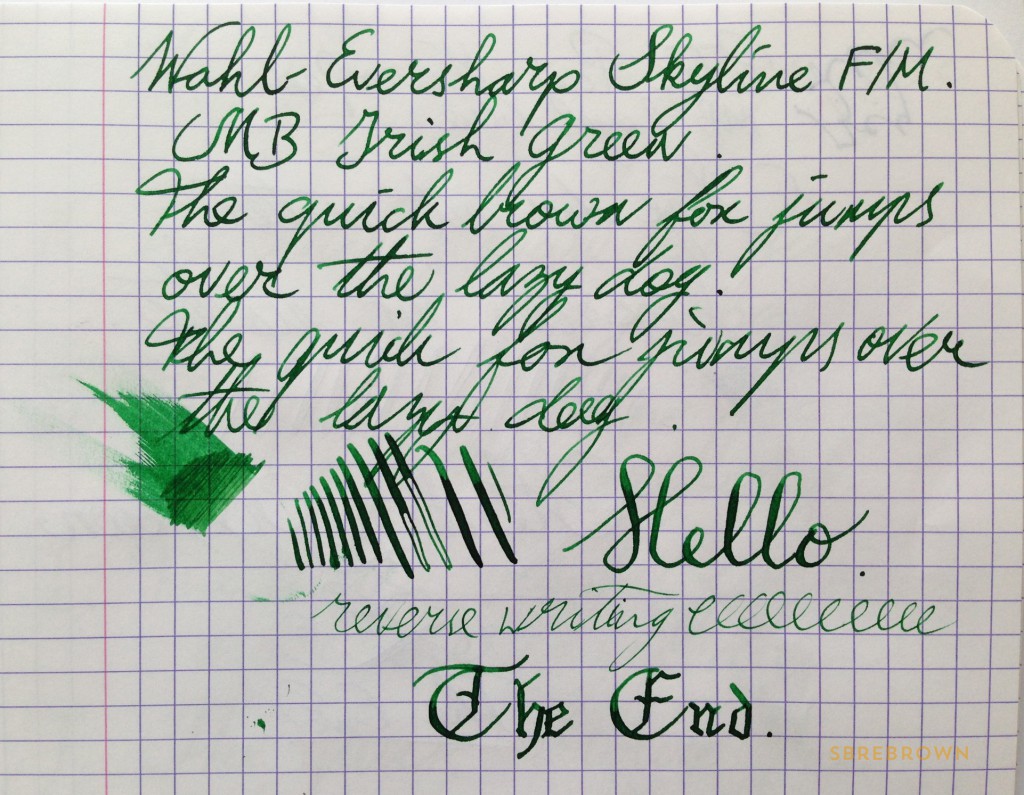 Wahl-Eversharp Skyline F/M.
MB Irish Green.
The quick brown fox jumps
over the lazy dog.
The quick fox jumps over
the lazy dog.
Hello.
reverse writing eeeeeeeeee
The End.
SBREBROWN